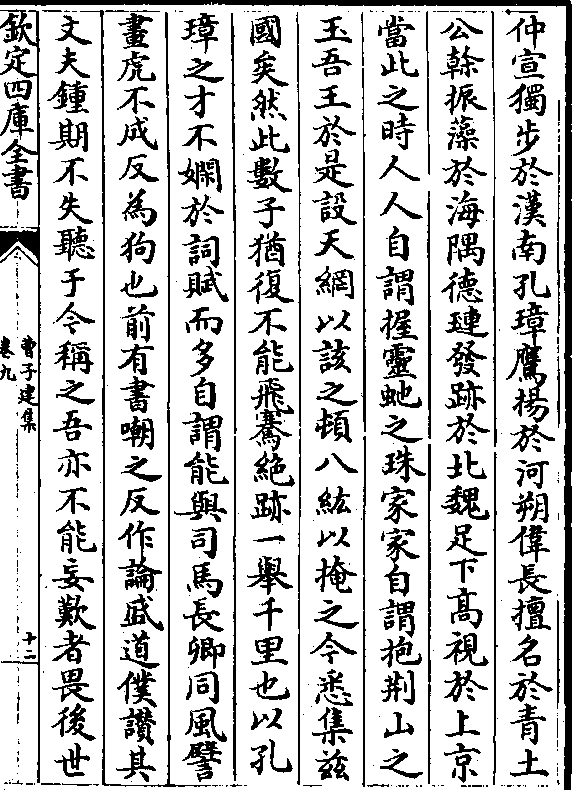 仲宣獨步於漢南孔璋鷹揚於河朔偉長擅名於青土
公幹振藻於海隅德璉發跡於北魏足下髙視於上京
當此之時人人自謂握靈虵之珠家家自謂抱荆山之
玉吾王於是設天網以該之頓八紘以掩之今悉集兹
國矣然此數子猶復不能飛騫絶跡一舉千里也以孔
璋之才不嫻於詞賦而多自謂能與司馬長卿同風譬
畫虎不成反為狗也前有書嘲之反作論盛道僕讃其
文夫鍾期不失聽于今稱之吾亦不能妄歎者畏後世
欽定四庫全書
曹子建集
卷九
十二